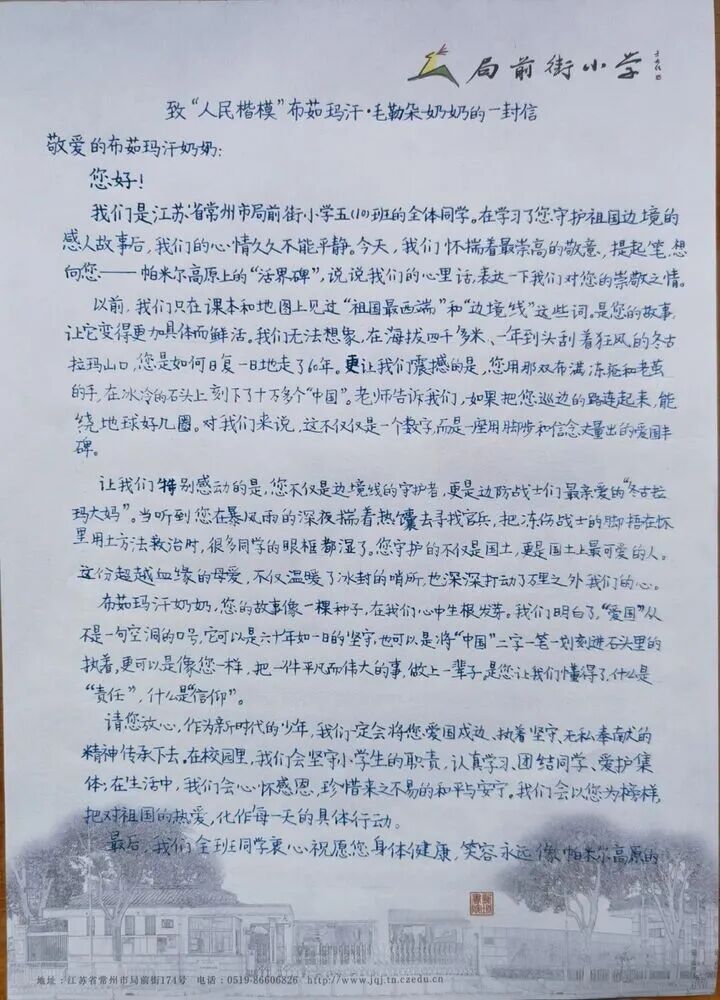 局前街小学
致“人民楷模”布茹玛汗·毛勒朵奶奶的一封信
敬爱的布茹玛汗奶奶：
您好！
我们是江苏省常州市局前街小学五（10）班的全体同学。在学习了您守护祖国边境的
感人故事后，我们的心情久久不能平静。今天，我们怀揣着最崇高的敬意，提起笔，想
向您——帕米尔高原上的“活界碑”，说说我们的心里话，表达一下我们对您的崇敬之情。
以前，我们只在课本和地图上见过“祖国最西端”和“边境线”这些词。是您的故事，
让它变得更加具体而鲜活。我们无法想象，在海拔四千多米、一年到头刮着狂风的冬古
拉玛山口，您是如何日复一日地走了60年。更让我们震撼的是，您用那双布满冻疮和老茧
的手，在冰冷的石头上刻下了十万多个“中国”。老师告诉我们，如果把您巡边的路连起来，能
绕地球好几圈。对我们来说，这不仅仅是一个数字，而是一座用脚步和信念丈量出的爱国丰
碑。
让我们特别感动的是，您不仅是边境线的守护者，更是边防战士们最亲爱的“冬古拉
玛大妈”。当听到您在暴风雨的深夜揣着热馕去寻找官兵，把冻伤战士的脚捂在怀
里用土方法救治时，很多同学的眼眶都湿了。您守护的不仅是国土，更是国土上最可爱的人。
这份超越血缘的母爱，不仅温暖了冰封的哨所，也深深打动了万里之外我们的心。
布茹玛汗奶奶，您的故事像一棵种子，在我们心中生根发芽。我们明白了，“爱国”从
不是一句空洞的口号，它可以是六十年如一日的坚守，也可以是将“中国”二字一笔一划刻进石头里的
执着，更可以是像您一样，把一件平凡而伟大的事，做上一辈子。是您让我们懂得了，什么是
“责任”，什么是“信仰”。
请您放心，作为新时代的少年，我们一定会将您爱国戍边、执着坚守、无私奉献的
精神传承下去。在校园里，我们会坚守小学生的职责，认真学习、团结同学、爱护集
体；在生活中，我们会心怀感恩，珍惜来之不易的和平与安宁。我们会以您为榜样，
把对祖国的热爱，化作每一天的具体行动。
最后，我们全班同学衷心祝愿您身体健康，笑容永远像帕米尔高原的
地址：江苏省常州市局前街174号 电话：0519-86606826 http://www.jqj.tn.czedu.cn